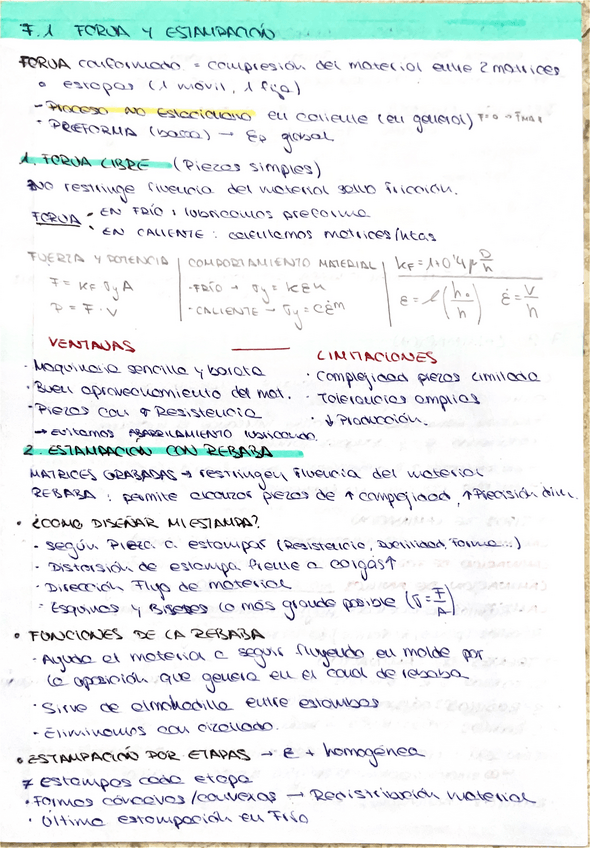 7.1 FORJA Y ESTAMPACIÓN
FORJA conformado = compresión del material entre 2 matrices
o estapas (1 móvil, 1 fija)
- PROCESO NO ESTACIONARIO en caliente (en general) F=0 → Fmax
- PREFORMA (barra) → Ep global
1. FORJA LIBRE (Piezas simples)
NO restringe fluencia del material salvo fricción.
FORJA - EN FRÍO : lubricamos preforma
- EN CALIENTE : calentamos matrices/htas
FUERZA Y POTENCIA
F = KF σy A
P = F · V
COMPORTAMIENTO MATERIAL
- FRÍO → σy = KEn
- CALIENTE → σy = Cε̇m
KF = 1+0'4μ D/h
ε = l(ho/h) ε̇ = V/h
VENTAJAS
· Maquinaria sencilla y barata
· Buen aprovechamiento del mat.
· Piezas con ↑ Resistencia
→ evitamos ABARRILAMIENTO lubricando.
LIMITACIONES
· Complejidad piezas limitada
· Tolerancias amplias
· ↓ Producción.
2. ESTAMPACIÓN CON REBABA
MATRICES GRABADAS → restringen fluencia del material
REBABA : permite alcanzar piezas de ↑ complejidad, ↑ Precisión dim.
• ¿CÓMO DISEÑAR MI ESTAMPA?
· Según Pieza a estampar (Resistencia, Ductilidad, forma...)
· Distorsión de estampa frente a cargas↑
· Dirección Flujo de material
· Esquinas y Biseles lo más grande posible (σ = F/A)
• FUNCIONES DE LA REBABA
· Ayuda al material a seguir fluyendo en molde por
la oposición que genera en el canal de rebaba
· Sirve de almohadilla entre estampas
· Eliminamos con cizallado.
• ESTAMPACIÓN POR ETAPAS → ε + homogénea
≠ estampas cada etapa
· Formas cóncavas/convexas → Redistribución material
· Última estampación en Frío